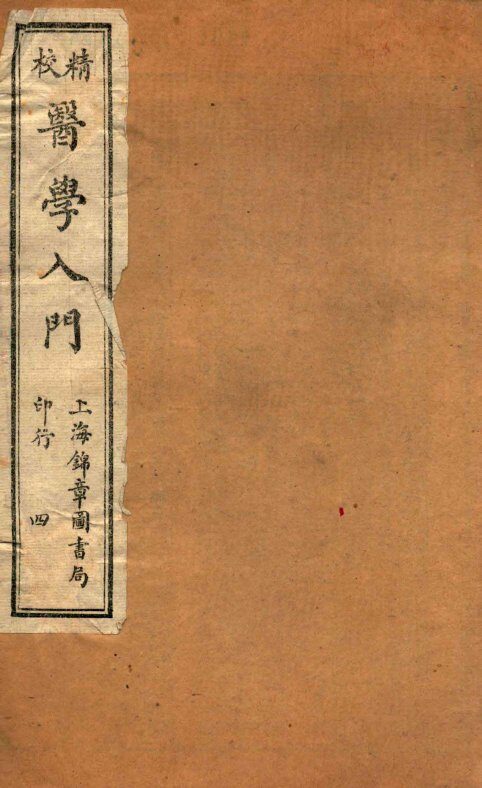 精校
醫學入門
上海錦章圖書局
印行 四